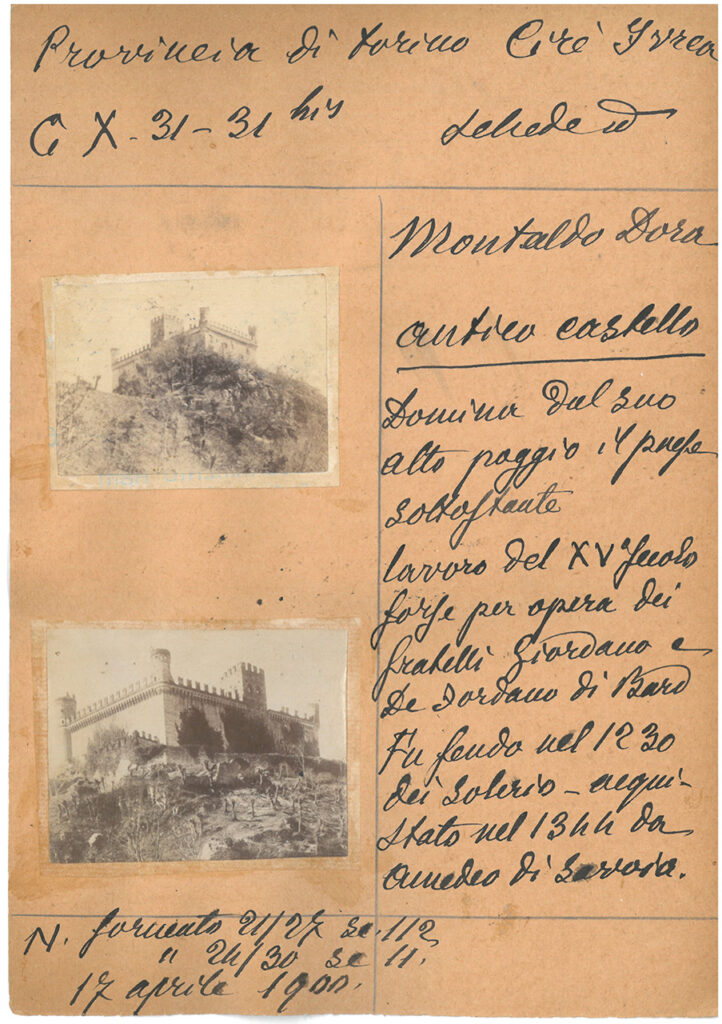 Provincia di Torino Ciré Yvrea
C X - 31 - 31 bis
Montaldo Dora
antico castello
Domina dal suo
alto poggio il paese
sottostante
lavoro del XV secolo
forse per opera dei
fratelli Giordano e
De Jordano di Bard
Fu feudo nel 1230
dei Solerio - acqui-
stato nel 1344 da
Amedeo di Savoia.
N. formato 21/27 sc. 112
" 24/30 sc 11.
17 aprile 1900.